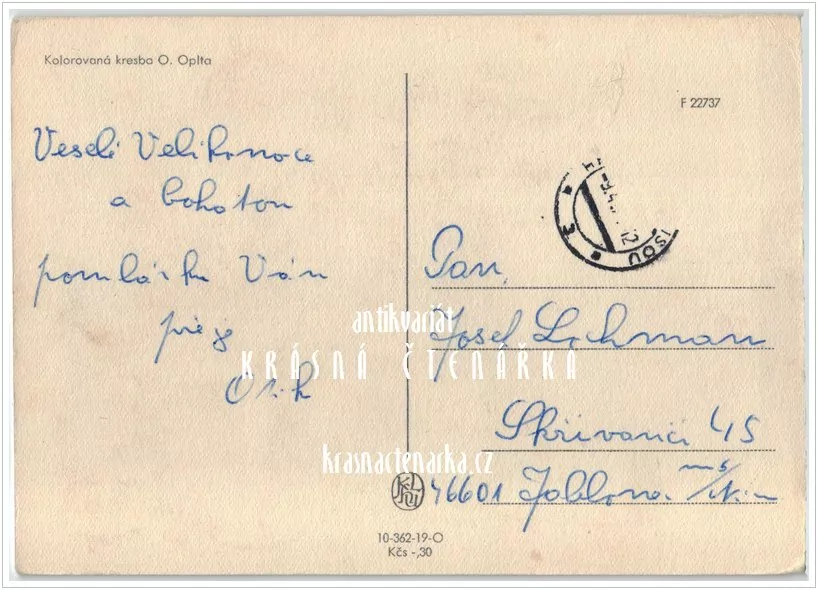 Kolorovaná kresba O. Oplta
F 22737
Veselé Velikonoce
a bohatou
pomlázku Vám
přeje
Pan
Josef Lohman
Skřivančí 45
46601 Jablonec n/Nisou
antikvariát
KRÁSNÁ ČTENÁŘKA
krasnactenarka.cz
10-362-19-O
Kčs -,30